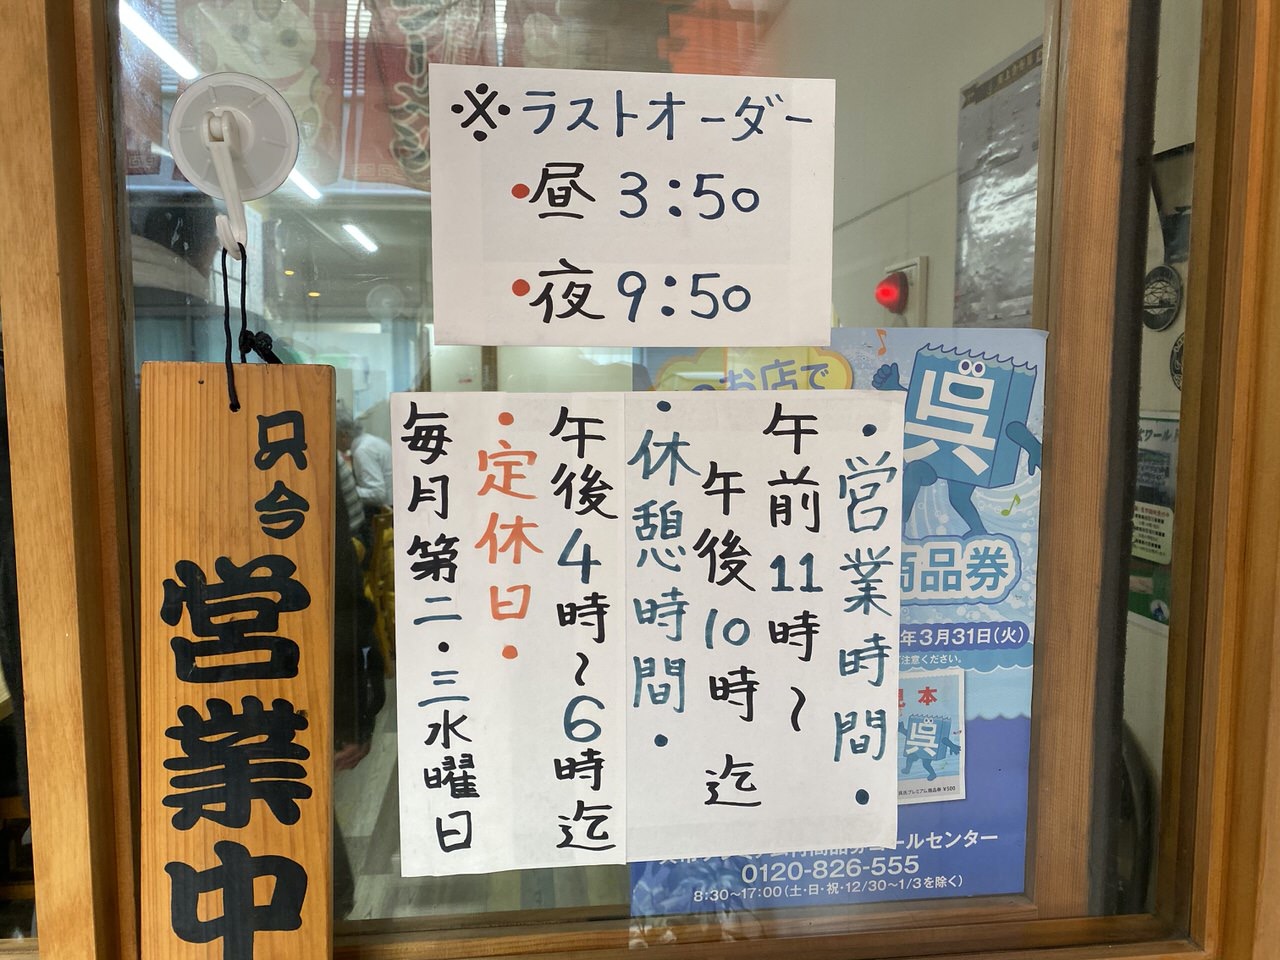 ※ラストオーダー
・昼 3:50
・夜 9:50
・営業時間・
午前11時〜
午後10時迄
・休憩時間・
午後4時〜6時迄
・定休日・
毎月第二・三水曜日
只今
営業中
お店で
呉
商品券
年3月31日(火)
ご注意ください。
見本
呉
コールセンター
0120-826-555
8:30〜17:00(土・日・祝・12/30〜1/3を除く)